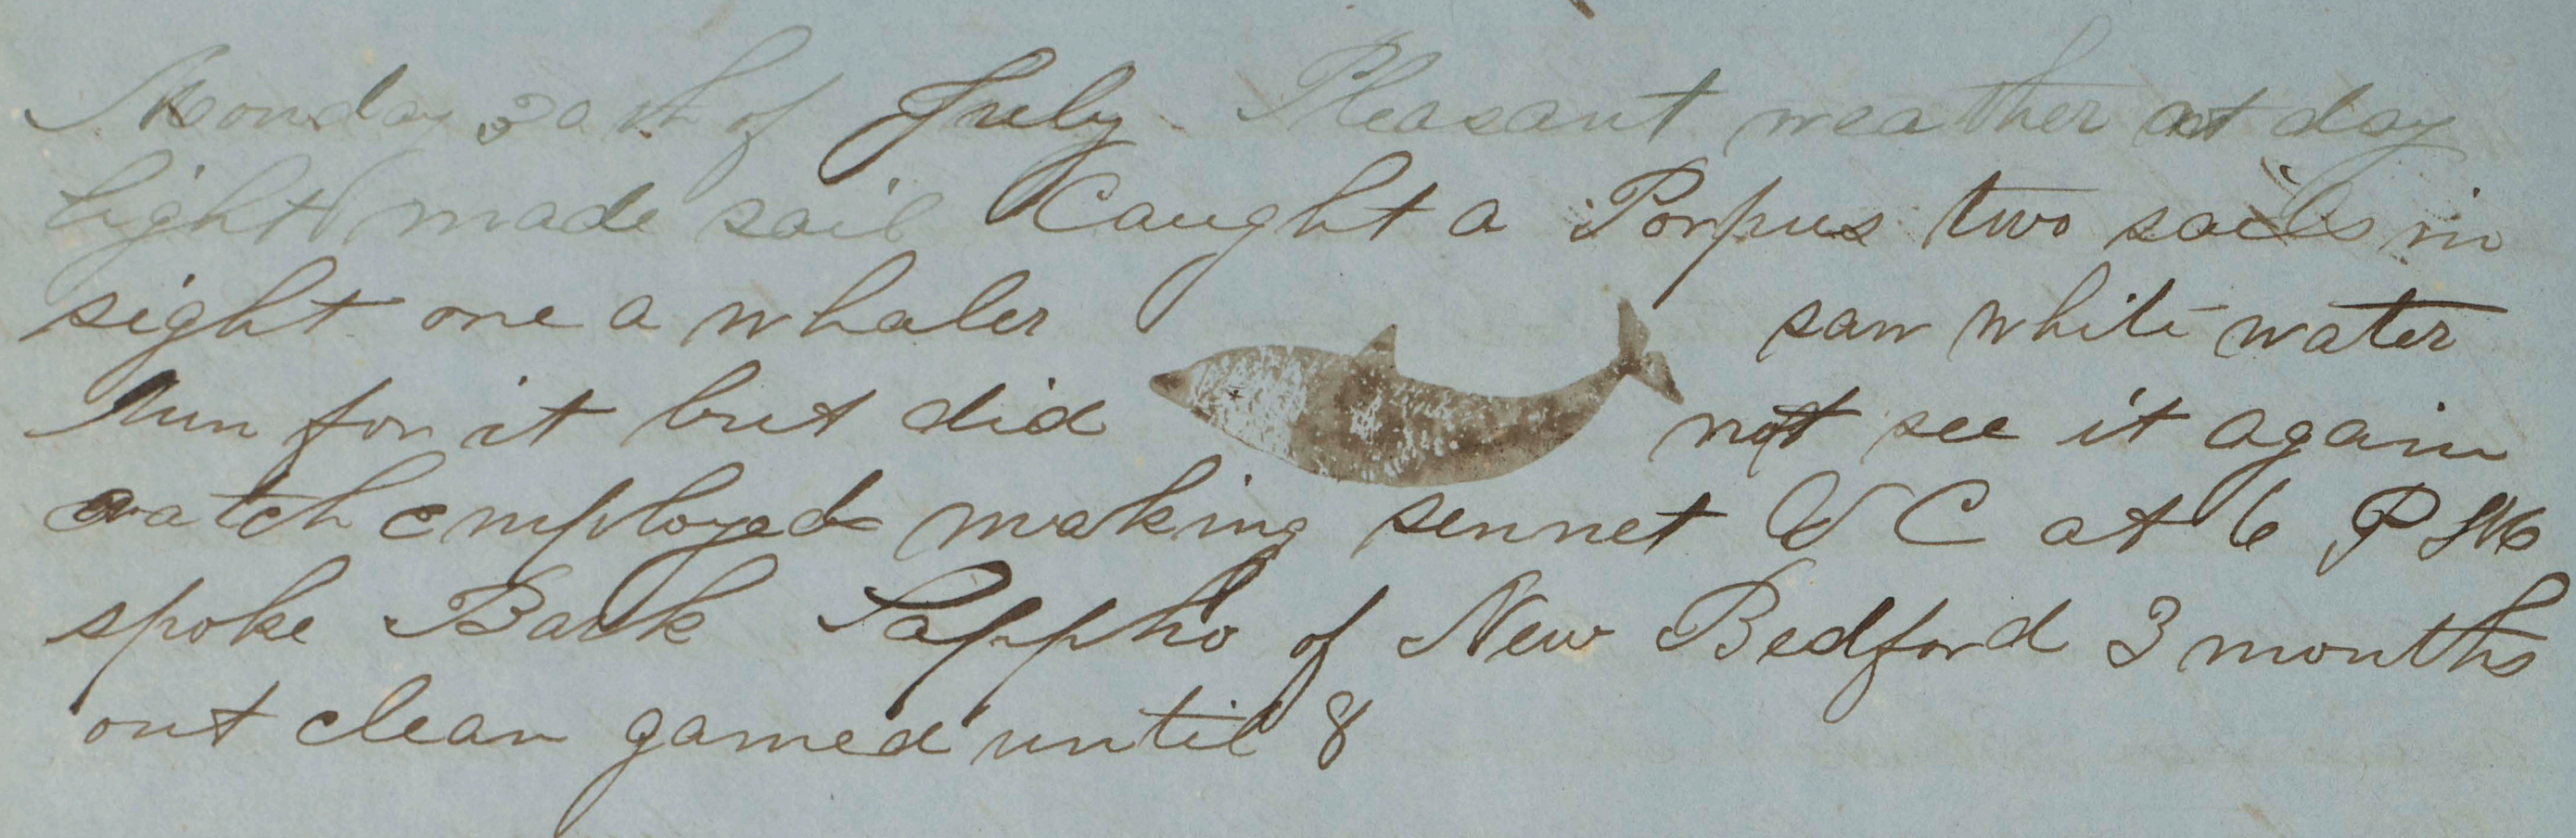 Monday 20th of July Pleasant weather at day
light made sail Caught a Porpus two sails in
sight one a whaler saw white water
run for it but did not see it again
watch employed making sennet &C at 6 PM
spoke Bark Sappho of New Bedford 3 months
out clean gamed until 8